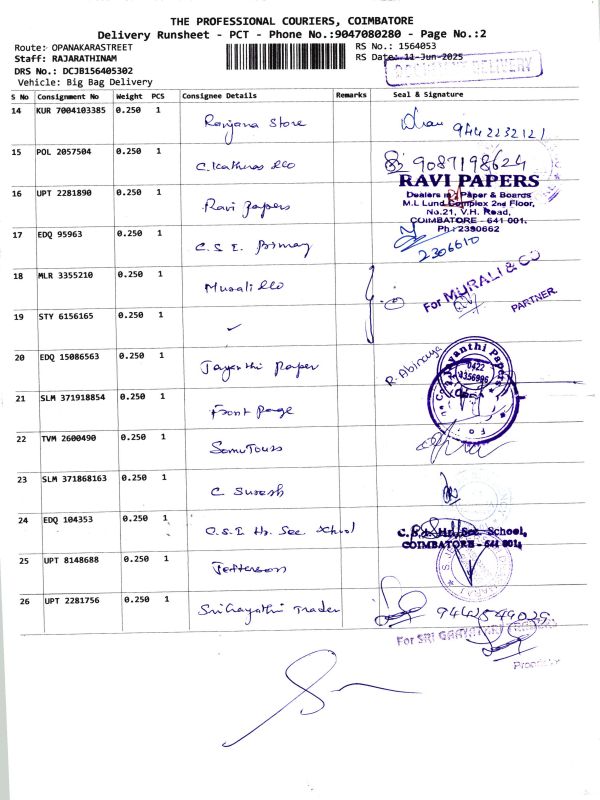 THE PROFESSIONAL COURIERS, COIMBATORE
Delivery Runsheet - PCT - Phone No.:9047080280 - Page No.:2
Route: OPANAKARASTREET
RS No.: 1564053
Staff: RAJARATHINAM
RS Date: 11-Jun-2025
DRS No.: DCJB156405302
Vehicle: Big Bag Delivery
S No Consignment No Weight PCS Consignee Details Remarks Seal & Signature
14 KUR 7004103385 0.250 1 Ranjana Store 9442232121
15 POL 2057504 0.250 1 9087198624
RAVI PAPERS
Dealers in : Paper & Boards
M.L Lund Complex 2nd Floor,
No.21, V.H. Road,
COIMBATORE - 641 001.
Ph : 2390662
16 UPT 2281890 0.250 1 Ravi papers
17 EDQ 95963 0.250 1 C.S.I. 2306610
18 MLR 3355210 0.250 1 Murali &Co For MURALI & CO
PARTNER
19 STY 6156165 0.250 1 ✓
20 EDQ 15086563 0.250 1 Jayanthi Paper R. Abiraya
Jayanthi Papers
0422
21 SLM 371918854 0.250 1 Front page
22 TVM 2600490 0.250 1 Somu Tours
23 SLM 371868163 0.250 1 C Suresh
24 EDQ 104353 0.250 1 C.S.I. Hr. Sec. School C.S.I. Hr. Sec. School,
COIMBATORE - 641 001.
25 UPT 8148688 0.250 1 Jefferson
26 UPT 2281756 0.250 1 Sri Gayathri Trader 9442549029
For SRI GAYATHRI TRADERS
Proprietor